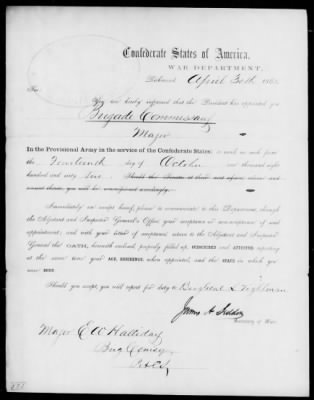 Confederate States of America,
WAR DEPARTMENT,
Richmond April 30th 186
Sir:
You are hereby informed that the President has appointed you
Brigade Commissary
Major
In the Provisional Army in the service of the Confederate States: to rank as such from
the day of October one thousand eight
hundred and sixty one. Should the Senate at their next session advise and
consent thereto, you will be commissioned accordingly.
Immediately on receipt hereof, please to communicate to this Department, through
the Adjutant and Inspector General's Office, your acceptance or non-acceptance of said
appointment; and with your letter of acceptance return to the Adjutant and Inspector
General the OATH, herewith enclosed, properly filled up, SUBSCRIBED and ATTESTED, reporting
at the same time your AGE, RESIDENCE when appointed, and the STATE in which you
were BORN.
Should you accept, you will report for duty to Brig Genl L Tilghman
James A Seddon
Secretary of War.
Major E W Halliday
Brig Comisy
P.A.C.S.